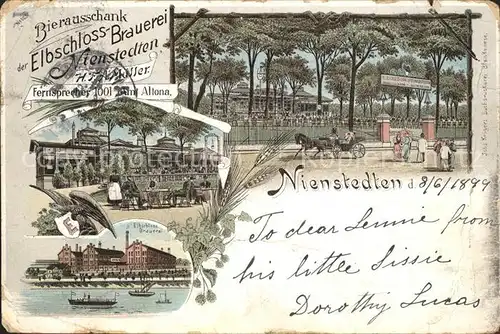 Bierausschank
der Elbschloss-Brauerei
Nienstedten
Müller.
Fernsprecher 1001 Amt Altona.
Nienstedten d. 8/6/1899
To dear Lennie from
his little Sissie
Dorothy Lucas
Elbschloss
Brauerei